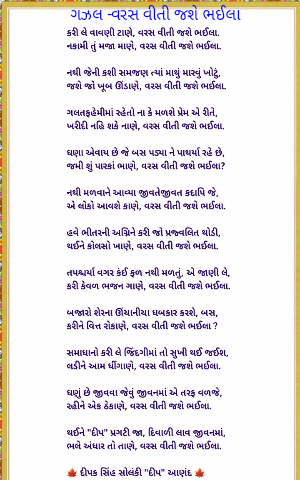 ગઝલ -વરસ વીતી જશે ભઈલા
કરી લે વાવણી ટાણે, વરસ વીતી જશે ભઈલા.
નકામી તું મજા માણે, વરસ વીતી જશે ભઈલા.
નથી જેની કશી સમજણ ત્યાં માથું મારવું ખોટું,
જશે જો ખૂબ ઊંડાણે, વરસ વીતી જશે ભઈલા.
ગલતફહેમીમાં રહેતો ના કે મળશે પ્રેમ એ રીતે,
ખરીદી નહિ શકે નાણે, વરસ વીતી જશે ભઈલા.
ઘણા એવાય છે જે બસ પડ્યા ને પાથર્યા રહે છે,
જમી શું પારકાં ભાણે, વરસ વીતી જશે ભઈલા?
નથી મળવાને આવ્યા જીવતેજીવત કદાપિ જે,
એ લોકો આવશે કાણે, વરસ વીતી જશે ભઈલા.
હવે ભીતરની અગ્નિને કરી જો પ્રજ્વલિત થોડી,
થઈને કોલસો ખાણે, વરસ વીતી જશે ભઈલા.
તપશ્ચર્યા વગર કંઈ ફળ નથી મળતું, એ જાણી લે,
કરી કેવળ ભજન ગાણે, વરસ વીતી જશે ભઈલા.
બજારો શેરના ઊંચાનીચા ધબકાર કરશે, બસ,
કરીને વિત્ત રોકાણે, વરસ વીતી જશે ભઈલા ?
સમાધાનો કરી લે જિંદગીમાં તો સુખી થઈ જઈશ,
લડીને આમ ધીંગાણે, વરસ વીતી જશે ભઈલા.
ઘણું છે જીવવા જેવું જીવનમાં એ તરફ વળજે,
રહીને એક ઠેકાણે, વરસ વીતી જશે ભઈલા.
થઈને "દીપ" પ્રગટી જા, દિવાળી લાવ જીવનમાં,
ભલે અંધાર તો તાણે, વરસ વીતી જશે ભઈલા.
🍁 દીપક સિંહ સોલંકી "દીપ" આણંદ 🍁